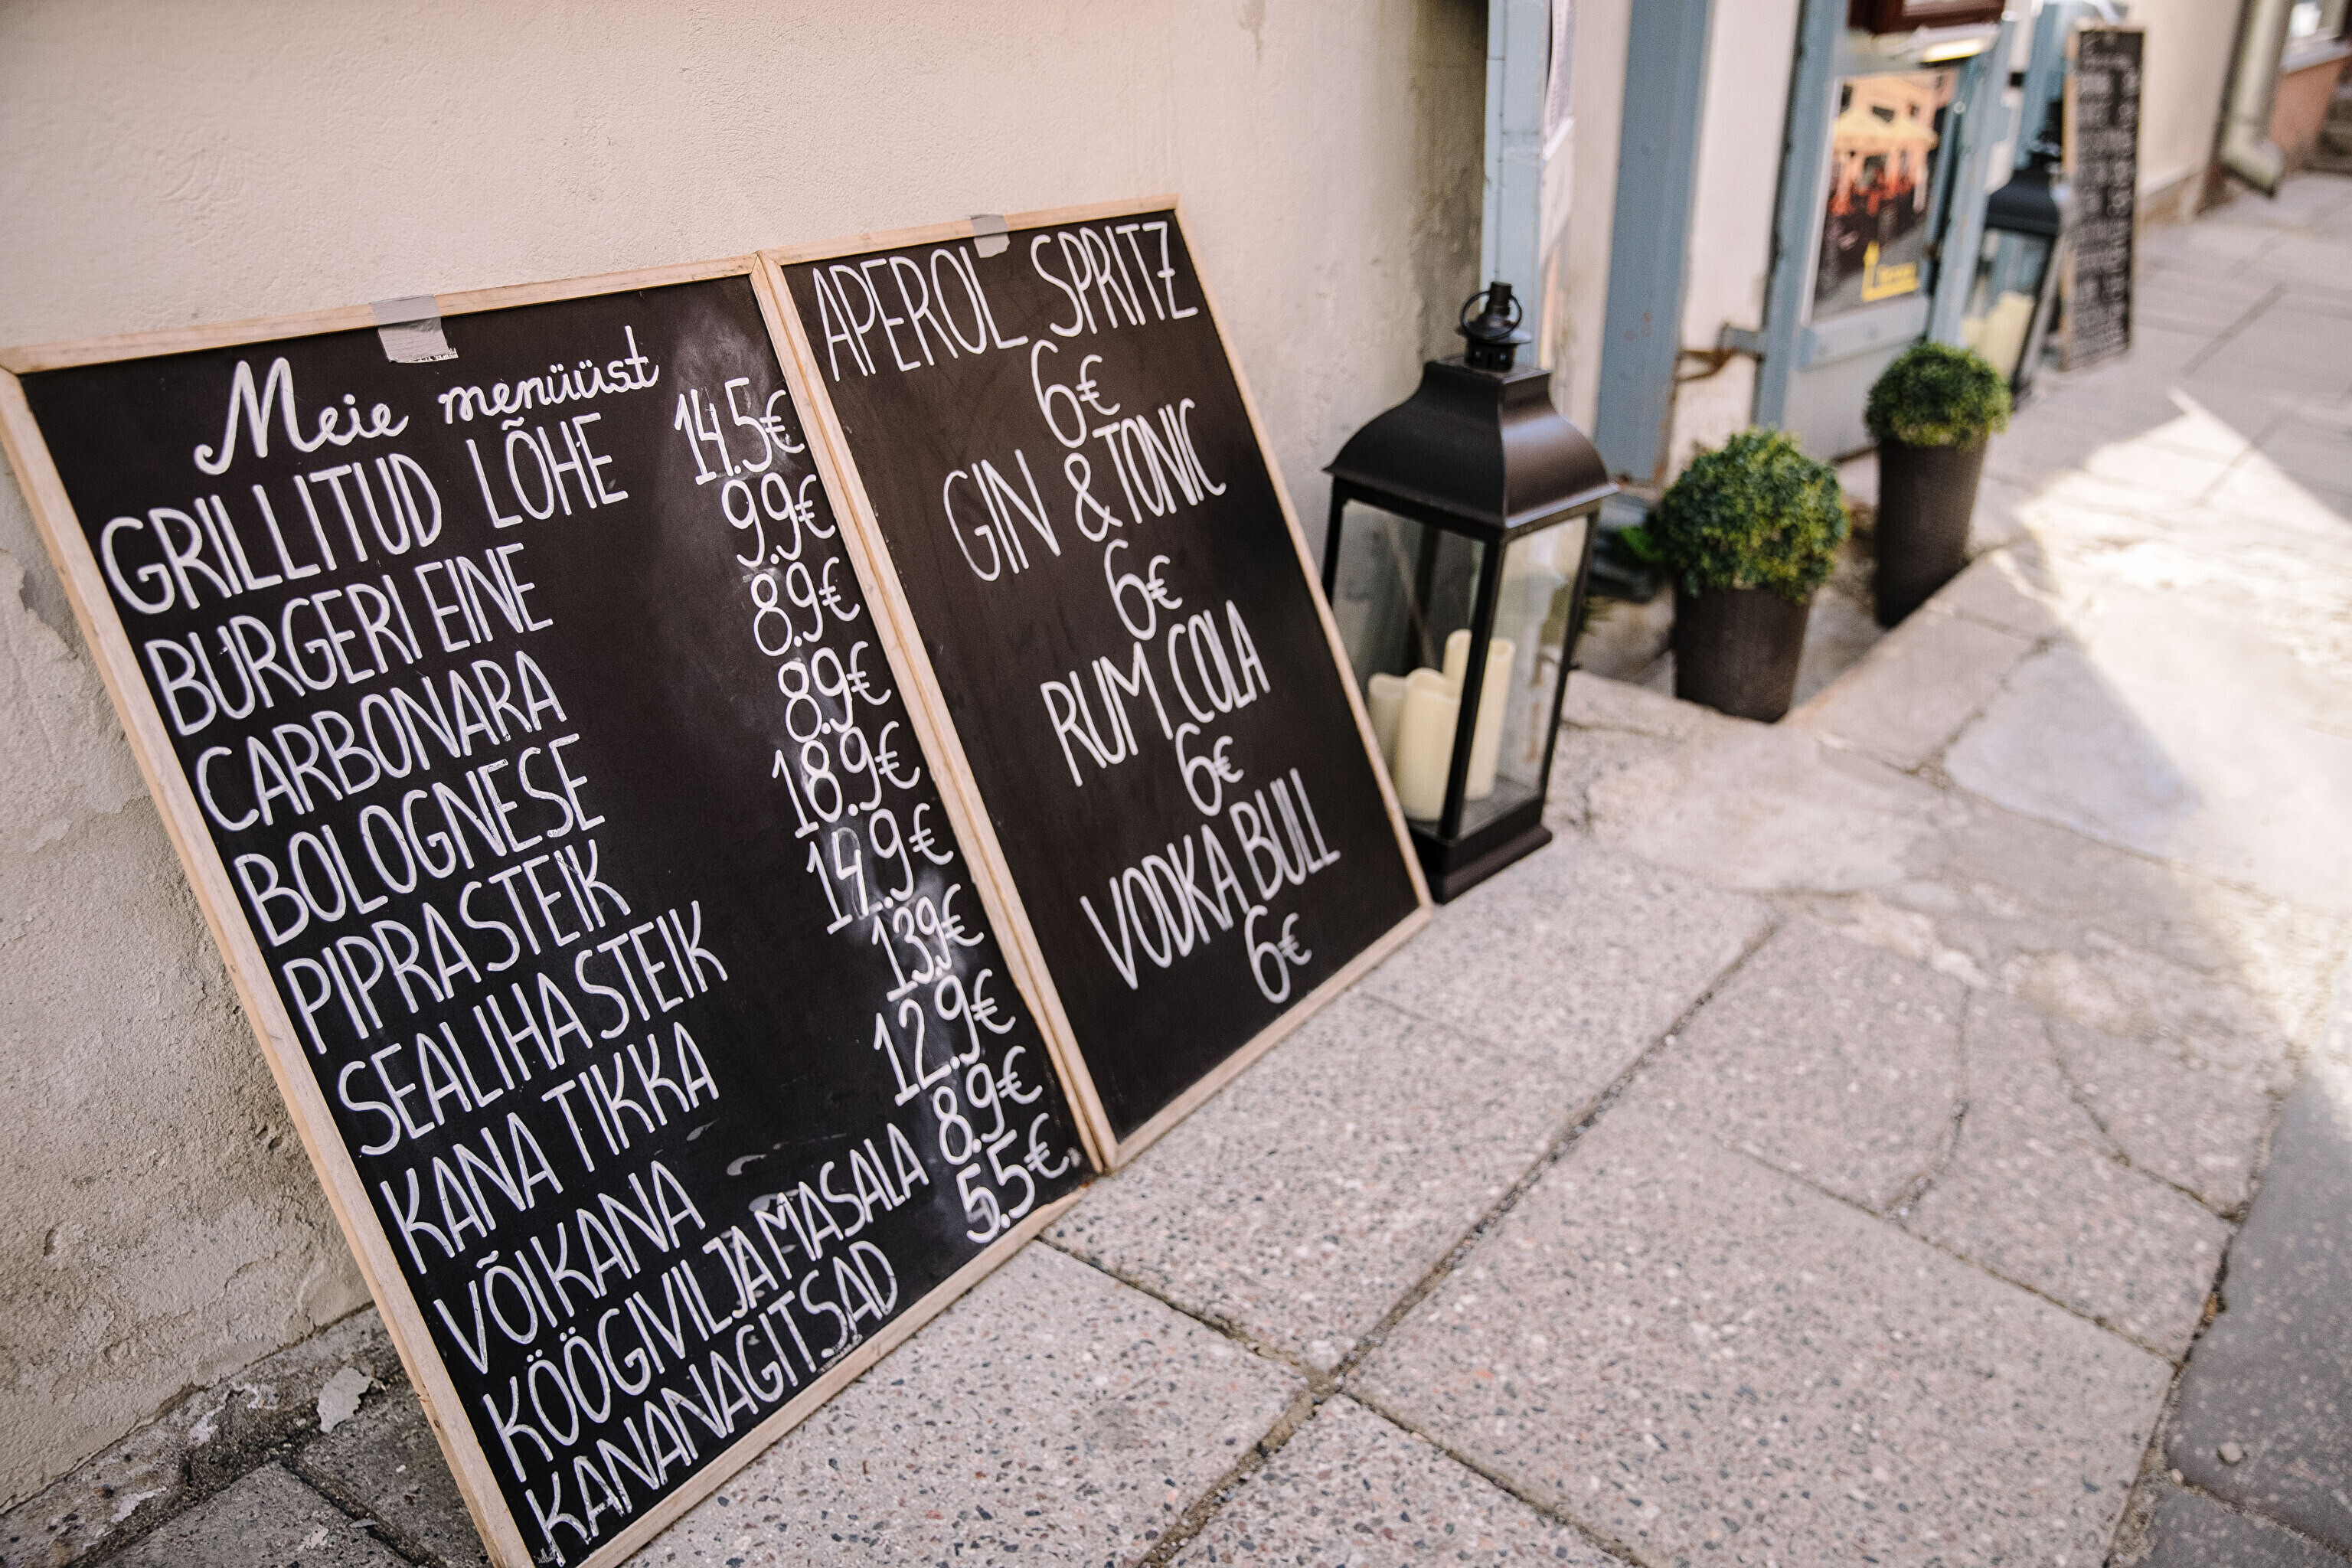 Meie menüüst
GRILLITUD LÕHE 14.5€
BURGERI EINE 9.9€
CARBONARA 8.9€
BOLOGNESE 8.9€
PIPRASTEIK 18.9€
SEALIHASTEIK 14.9€
KANA TIKKA 13.9€
VÕIKANA 12.9€
KÖÖGIVILJA MASALA 8.9€
KANANAGITSAD 5.5€
APEROL SPRITZ
6€
GIN & TONIC
6€
RUM COLA
6€
VODKA BULL
6€